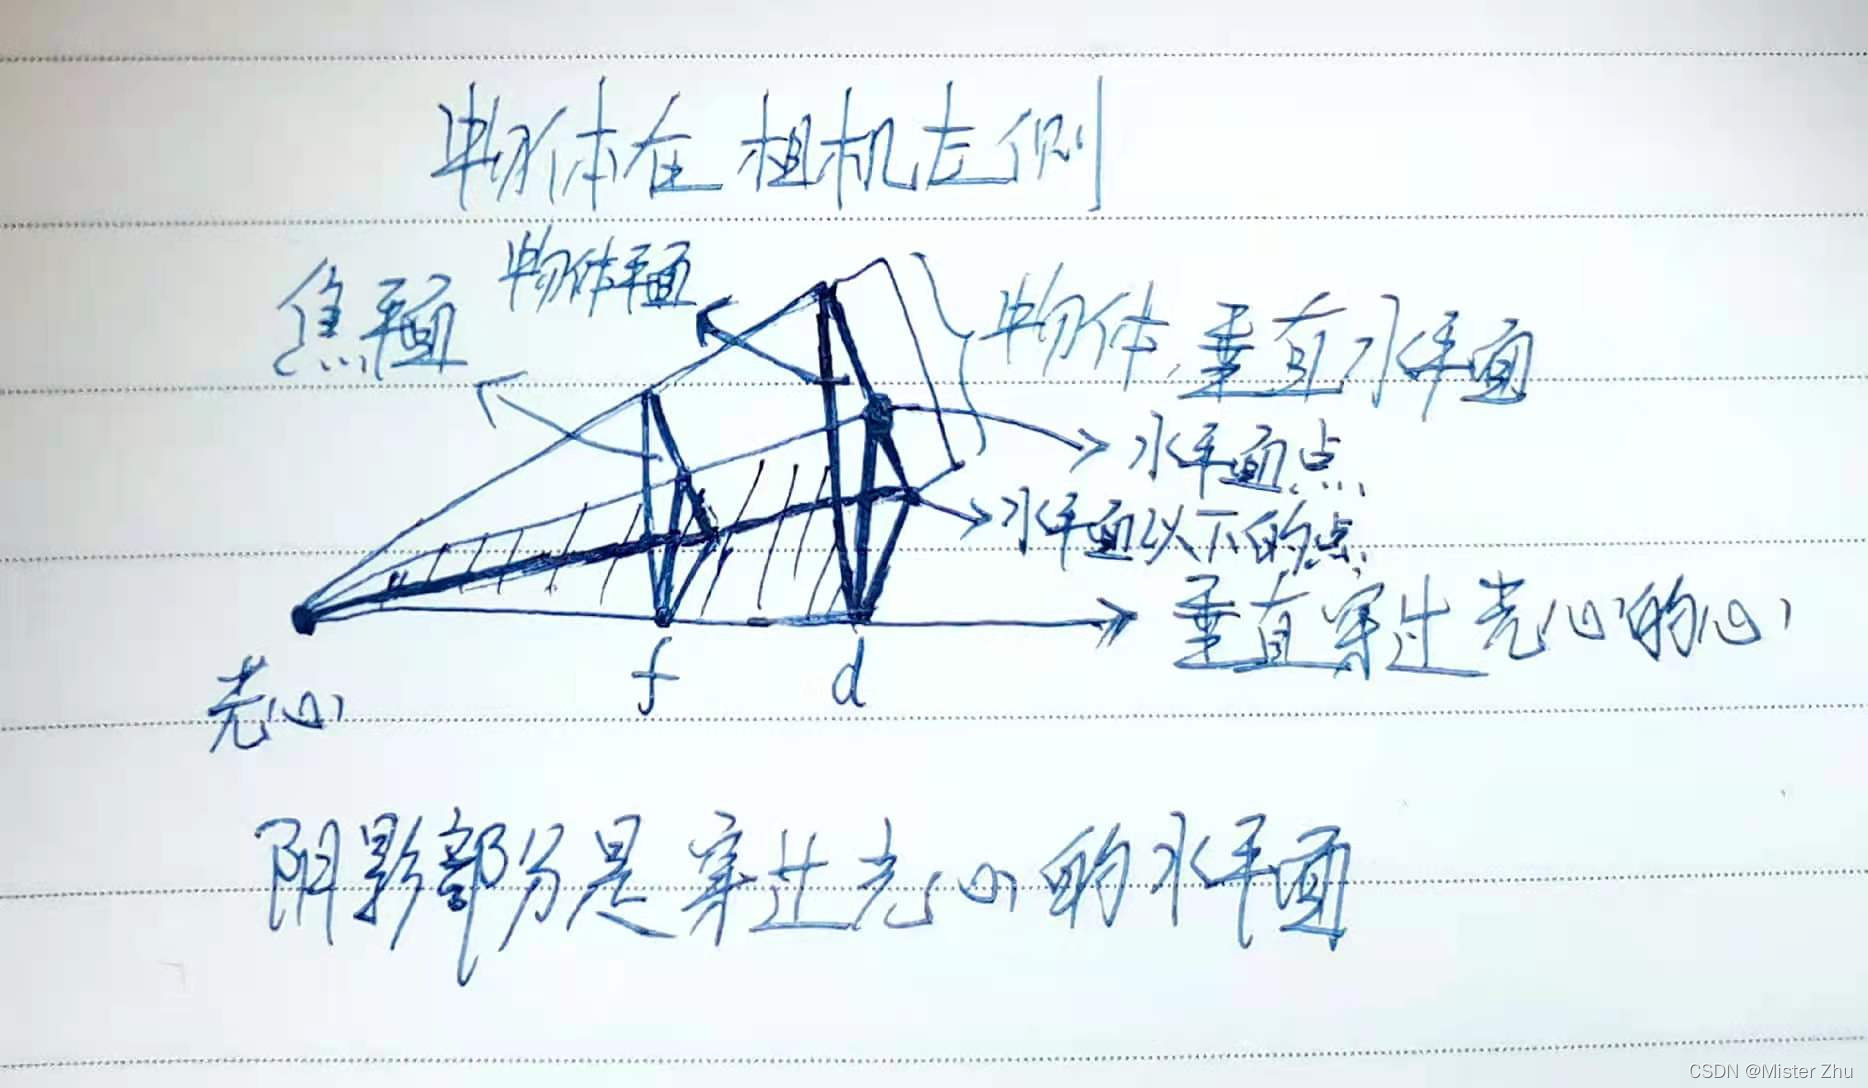 物体在相机左侧
焦平面
物体平面
物体,垂直水平面
水平面点
水平面以下的点
垂直穿过光心的心
光心
f
d
阴影部分是穿过光心的水平面
CSDN @Mister Zhu